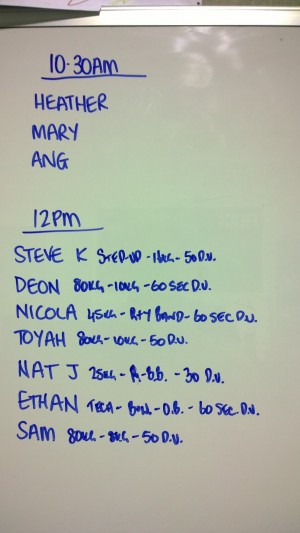 10-30AM
HEATHER
MARY
ANG
12PM
STEVE K STEP-UP - 16KG - 50 D.U.
DEON 80KG - 10KG - 60 SEC D.U.
NICOLA 45KG - R+Y BAND - 60 SEC D.U.
TOYAH 80KG - 10KG - 50 D.U.
NAT J 25KG - R - B.B. - 30 D.U.
ETHAN - O.B. - 60 SEC. D.U.
SAM 80KG - 8KG - 50 D.U.